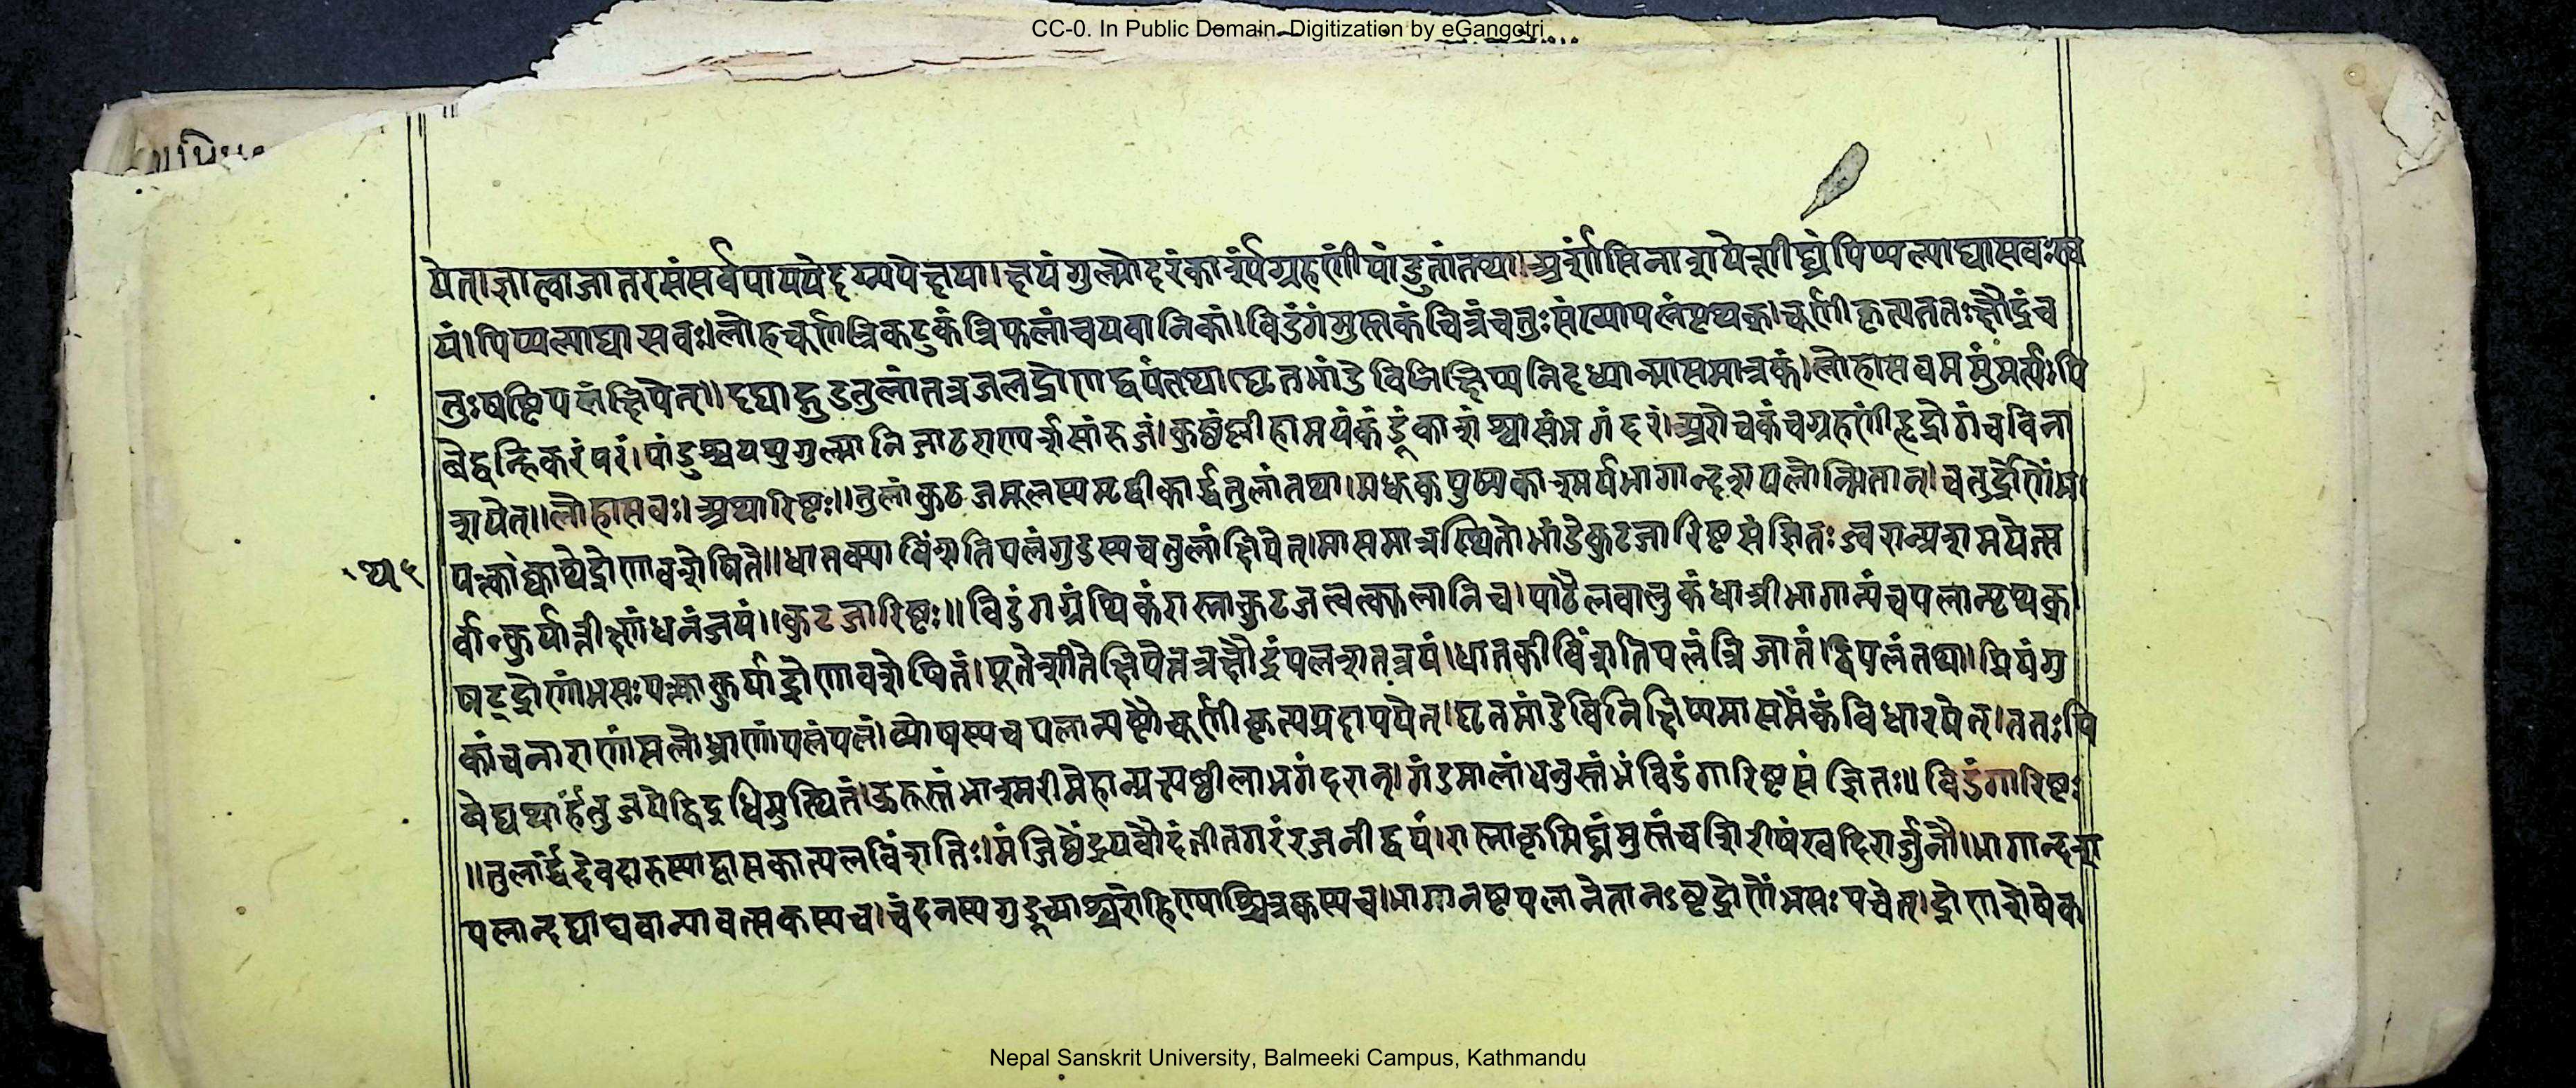 CC-0. In Public Domain. Digitization by eGangotri
येत्।ज्ञात्वाजातरसंसर्वंपाययेदग्न्यपेक्षया।क्षयंगुल्मोदरंकार्श्यंग्रहणींपांडुतांतथा।अर्शांसिनाशयेच्छीघ्रंपिप्पल्याद्यासवःस्व
यं।पिप्पल्याद्यासवः।लोहचूर्णंत्रिकटुकंत्रिफलांचयवानिकां।विडंगंमुस्तकंचित्रंचतुःसंख्यापलंपृथक्।चूर्णीकृत्यततःक्षौद्रंच
तुःषष्टिपलंक्षिपेत्॥दद्याद्गुडतुलांतत्रजलद्रोणद्वयंतथाघृतभांडेविनिक्षिप्यनिदध्यान्मासमात्रकं।लोहासवममुंमर्त्यःपि
बेद्वन्हिकरंपरं।पांडुश्वयथुगुल्मानिजाठराण्यर्शसांरुजं।कुष्ठंप्लीहामयंकंडूंकाशंश्वासंभगंदरं।अरोचकंचग्रहणींहृद्रोगंचविना
शयेत्॥लोहासवः।अथारिष्टः॥तुलांकुटजमूलस्यमृद्वीकार्द्धतुलांतथा।मधूकपुष्पकाश्मर्यभागान्दशपलोन्मितान्।चतुर्द्रोणेंभ
पक्त्वाक्वाथेद्रोणावशेषिते॥धातक्याविंशतिपलंगुडस्यचतुलांक्षिपेत्।मासमात्रस्थितोभांडेकुटजारिष्टसंज्ञितःज्वरान्प्रशमयेत्स
र्वान्कुर्यात्तीक्ष्णंधनंजयं॥कुटजारिष्टः॥विडंगग्रंथिकंरास्नाकुटजत्वक्फलानिच।पाठैलवालुकंधात्रीभागान्पंचपलान्पृथक्।
षट्द्रोणेंभसःपक्त्वाकुर्याद्द्रोणावशेषितं।पूतेशीतेक्षिपेत्तत्रक्षौद्रंपलशतत्रयं।धातकींविंशतिपलंत्रिजातंद्विपलंतथा।प्रियंगु
कांचनाराणांसलोध्राणांपलंपलं।व्योषस्यचपलान्यष्टौचूर्णीकृत्यप्रदापयेत्।घृतभांडेविनिक्षिप्यमासमेकंविधारयेत्।ततःपि
बेद्यथार्हंतुजयेद्विद्रधिमुत्थितं।ऊरुस्तंभाश्मरीमेहान्प्रत्यष्ठीलाभगंदरान्।गंडमालांधनुस्तंभंविडंगारिष्टसंज्ञितः॥विडंगारिष्टः
॥तुलार्द्धंदेवदारुस्याद्वासकात्पलविंशतिः।मंजिष्ठेंद्रयवौदंतीतगरंरजनीद्वयं।रास्नाकृमिघ्नंमुस्तंचशिरीषंखदिरार्जुनौ।भागान्दश
पलान्दद्याद्यवान्यावत्सकस्यच।चंदनस्यगुडूच्याश्चरोहिण्याश्चित्रकस्यच।भागानष्टपलानेतानऽष्टद्रोणेंभसःपचेत्।द्रोणशेषेक
Nepal Sanskrit University, Balmeeki Campus, Kathmandu